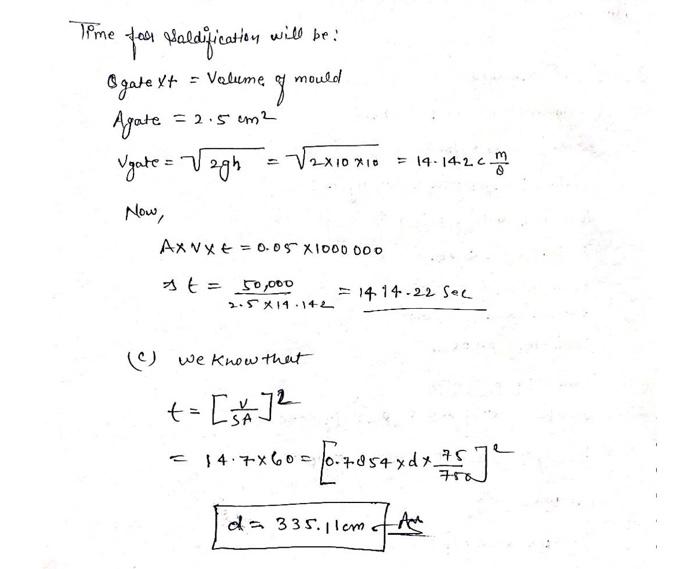 Time for Soldification will be:
Qgate x t = Volume of mould
Agate = 2.5 cm2
Vgate = √2gh = √2x10x10 = 14.142 c m/s
Now,
A x V x t = 0.05 x 1000 000
⇒ t = 50,000 / 2.5 x 14.142 = 1414.22 Sec
(c) we know that
t = [V/SA]2
= 14.7x60 = [0.7854 x d x 75/75a]2
d = 335.11cm Ans